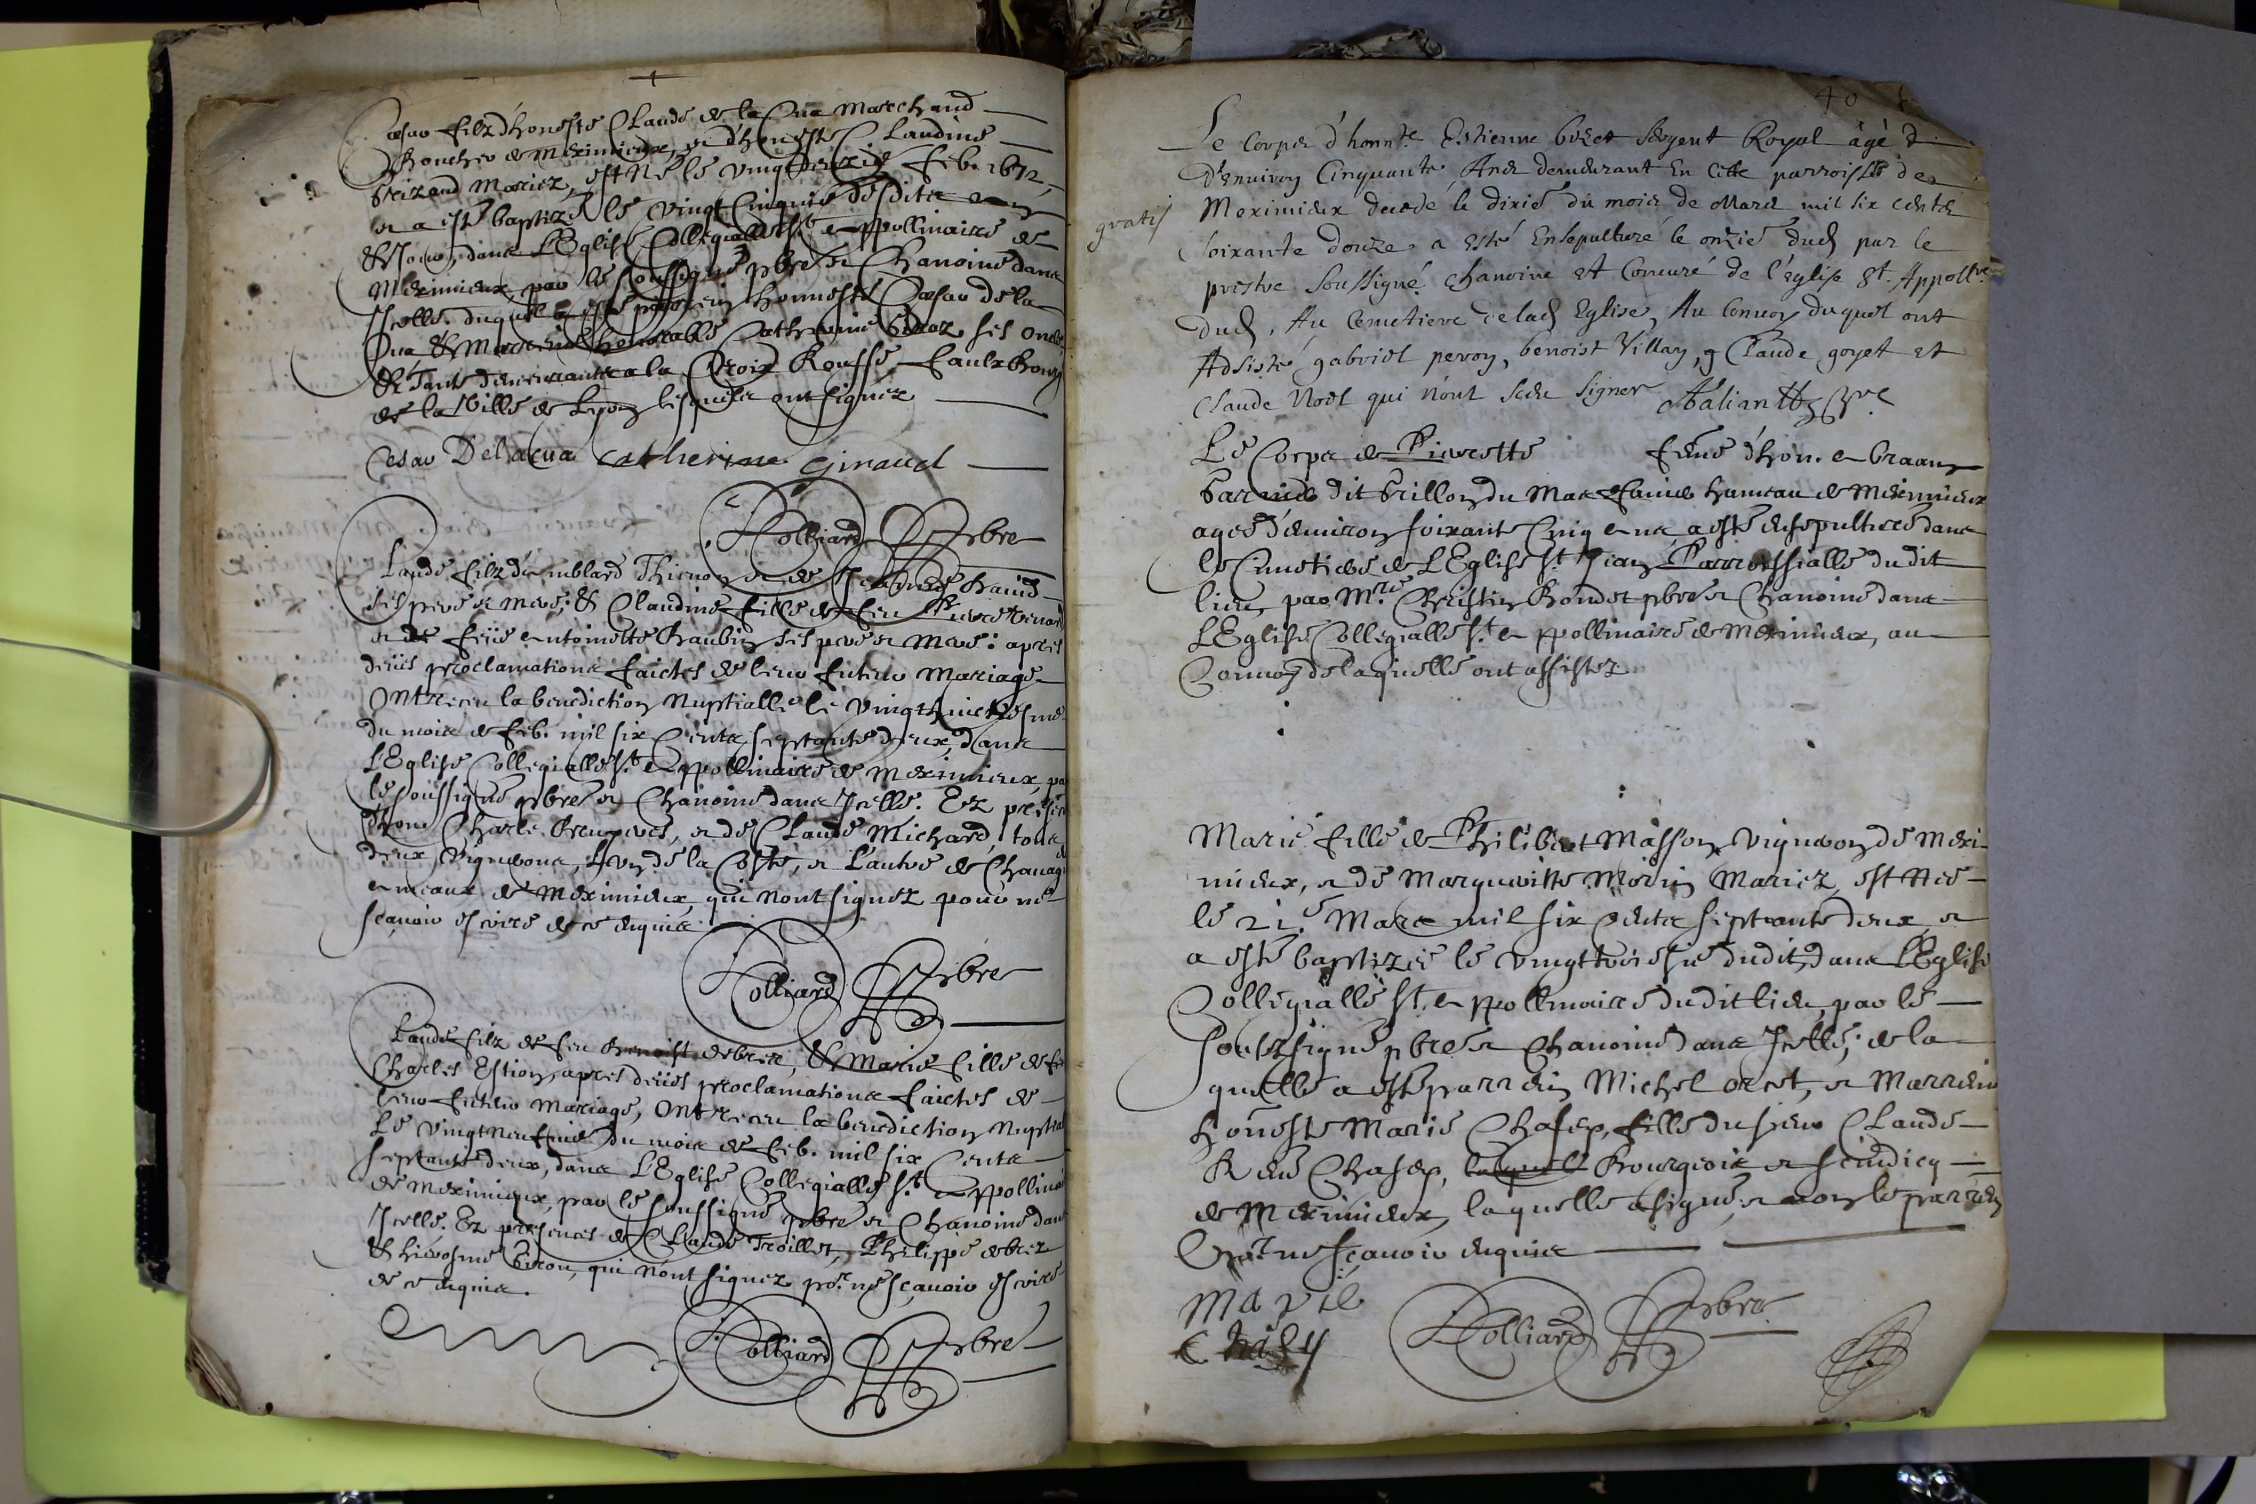 Cæsar filz d'honeste Claude de la Cua Marchand
Boucher de Meximieux, et d'honeste Claudine
mariez, est né le vingt feb. 1672,
et a esté baptizé le vingt cinquie desdits
et jour, dans L'Eglise Collegialle St. Appollinaire de
Meximieux, par le soussigné pbre et Chanoine dans
Icelle. duquel a esté parrein honneste Cæsar de la
Cua & Marreine honorable Catherine ses oncle
& Tante demeurants a la Croix Rousse Faulxbourg
de la Ville de Lyon lesquels ont signéz
Cesar Delacua Catherine Giraud
Colliard Pbre
Claude filz d'Emblard Thienon et de
ses pere et mere; & Claudine fille de feu Pierre
et de feüe Antoinette Baubin ses pere et mere: apres
deües proclamations faictes de leur futur Mariage
Ont receu la benediction Nuptialle le vingthuictiesme
du mois de feb. mil six Cents septante deux, dans
L'Eglise Collegialle St. Appollinaire de Meximieux, par
le soussigné pbre et Chanoine dans Icelle. Ez presences
d'hon. Charle et de Claude Michard, tous
deux Vignerons, L'un de la Coste, et L'autre de
hameaux de Meximieux, qui n'ont signez pour ne
sçavoir escrire de ce enquis
Colliard Pbre
Claude filz de feu Benoist debrez, & Marie fille de feu
Charles Estion, apres deües proclamations faictes de
leur futur Mariage, Ont receu la benediction Nuptiale
Le vingtneufvie du mois de feb. mil six Cents
septante deux, dans L'Eglise Collegialle St. Appollinaire
de Meximieux, par le soussigné pbre et Chanoine dans
Icelle. Ez presences de Claude Troillet, Philippe debrez
& hierosme qui n'ont signez por. ne sçavoir escrire
de ce enquis.
Colliard Pbre
40
Le Corps d'honnte. Estienne Sergent Royal âgé d
D'enuiron Cinquante Ans demeurant En Cette parroisse de
gratis
Meximieux decedé le dixie du mois de Mars mil six cents
soixante douze a esté Ensepulturé le onzie dud par le
prestre soussigné Chanoine et Concuré de l'église St. Appollre.
dud, Au Cemetiere delad Eglise, Au Convoy duquel ont
Adsisté gabriel peron, benoist Villan, Claude goyet et
Claude Noel qui n'ont sceu signer
Le Corps de Pierrette feme d'hon. Antoine
dit brillon du Mas hameau de Meximieux
agee d'environ soixante Cinq ans a esté ensepulturé dans
le Cimetiere de L'Eglise St. Jean Parroissialle dudit
lieu, par Mre. Christin Bondet pbre et Chanoine dans
L'Eglise Collegialle St. Appollinaire de Meximieux, au
Convoy de laquelle ont assistez
Marie fille de Philibert Masson vigneron de Mexi-
mieux, et de Margueritte Morin Mariez, est nee
le 21e Mars mil six Cents septante deux, et
a esté baptizée le vingttroisie dudit, dans L'Eglise
Collegialle St. Appollinaire dudit lieu, par le
soubzsigné pbre et Chanoine dans Icelle; de la
quelle a esté parrein Michel orset, et Marreine
honeste Marie Chasey, fille du sieur Claude
René Chasey, laquell Bourgeois et scindicq
de Meximieux, laquelle a signé, et non le parrein
pour ne sçavoir enquis
Marie
Chasey
Colliard Pbre